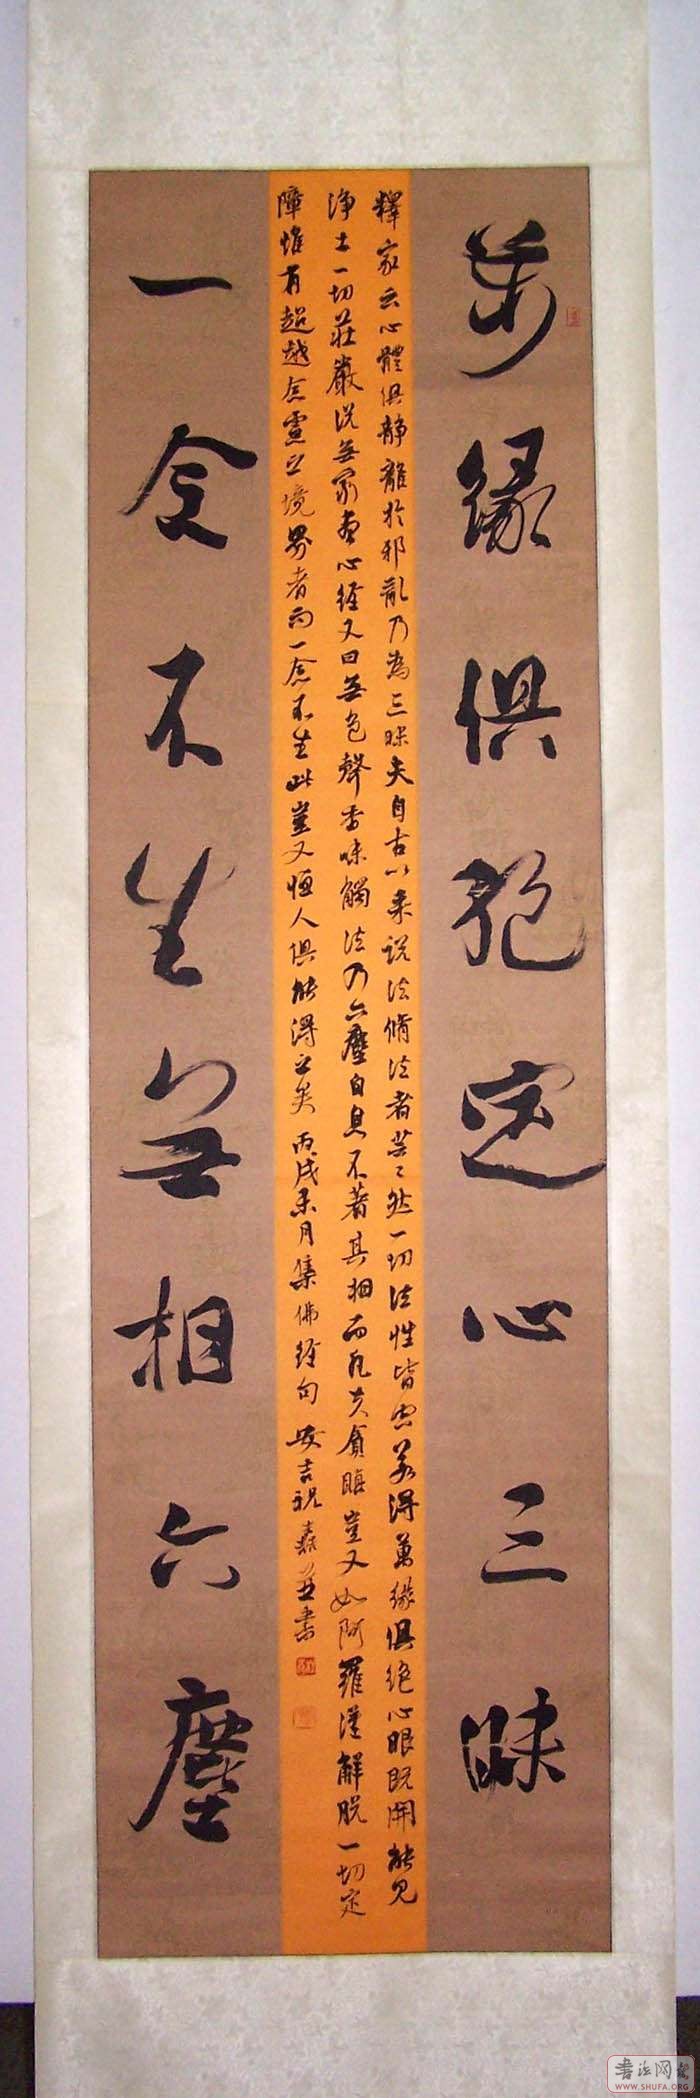 萬緣俱絕定心三昧
釋家云心體俱靜離於邪亂乃為三昧夫自古以來説法脩法者芸芸然一切法性皆空若得萬緣俱絕心眼既開能見
淨土一切莊嚴況無窮盡心經又曰無色聲香味觸法乃六塵自息不著其相而凡夫貪瞋豈又如阿羅漢解脱一切定
障惟有超越念慮之境界者而一念不生此豈又恒人俱能得之矣 丙戌 月集佛經句 安吉祝 並書
一念不生無相六塵
書法网
WWW.SHUFA.ORG